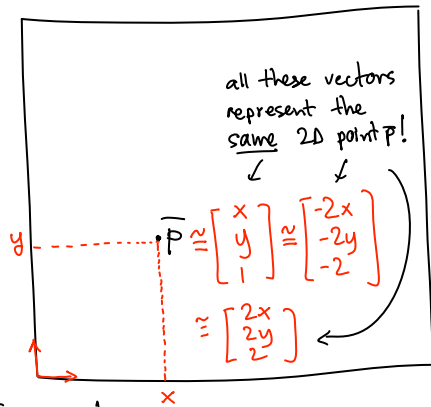 all these vectors
represent the
same 2D point p̅!
y
p̅ ≅ [x y 1] ≅ [-2x -2y -2]
≅ [2x 2y 2]
x